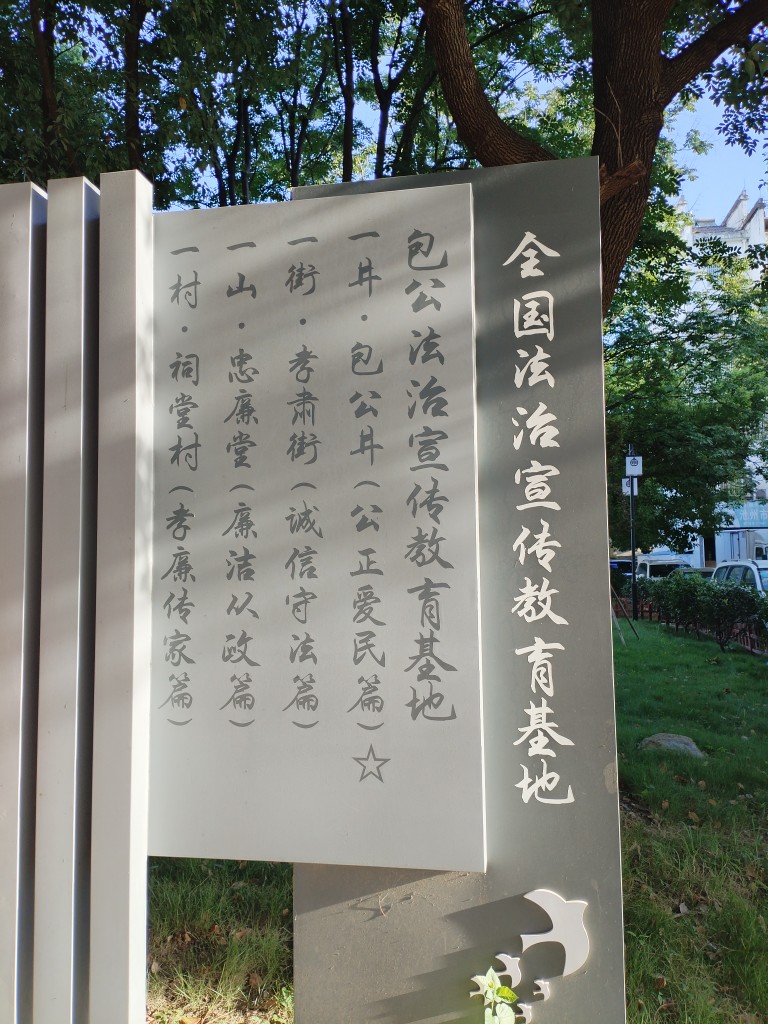 全国法治宣传教育基地
包公法治宣传教育基地
一井·包公井(公正爱民篇)☆
一街·孝肃街(诚信守法篇)
一山·忠廉堂(廉洁从政篇)
一村·祠堂村(孝廉传家篇)